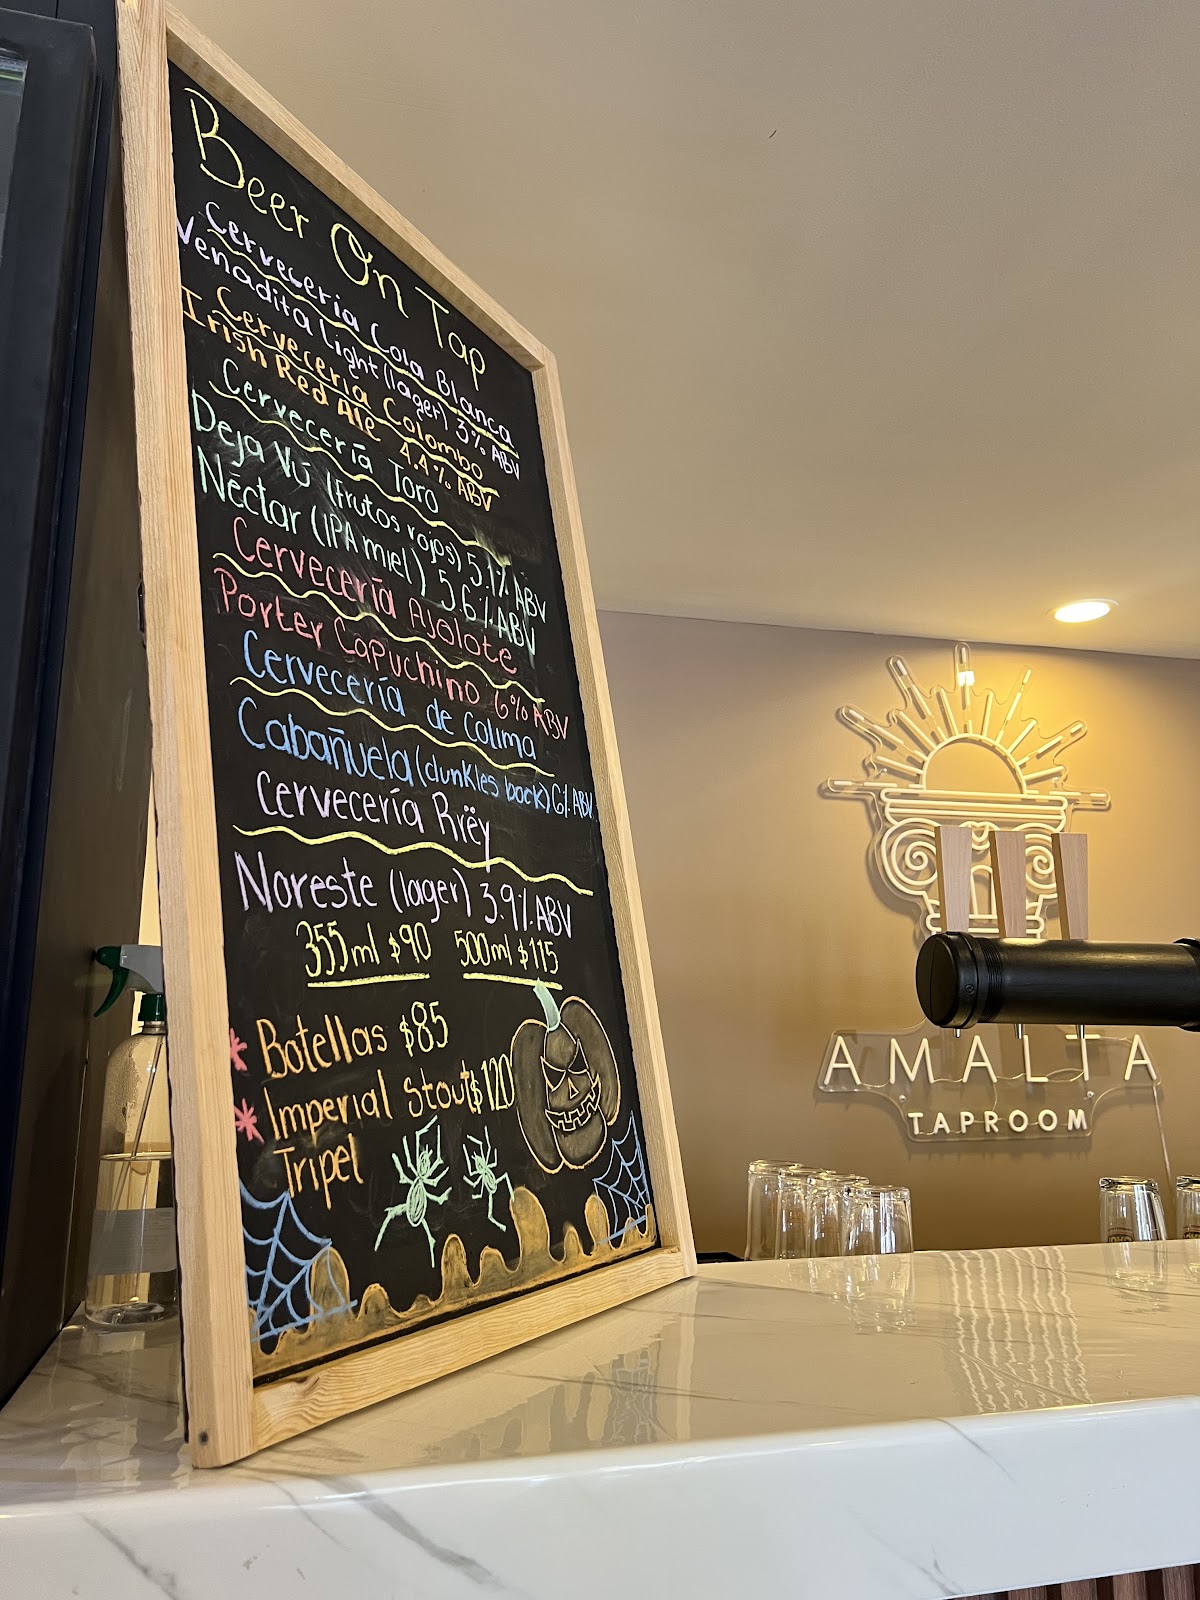 Beer On Tap
Cervecería Cola Blanca
Venadita Light (lager) 3% ABV
Cervecería Colombo
Irish Red Ale 4.4% ABV
Cervecería Toro
Deja Vú (frutos rojos) 5.1% ABV
Néctar (IPA miel) 5.6% ABV
Cervecería Ajolote
Porter Capuchino 6% ABV
Cervecería de Colima
Cabañuela (dunkles bock) 6% ABV
Cervecería Rrëy
Noreste (lager) 3.9% ABV
355ml $90 500ml $115
* Botellas $85
* Imperial Stout $120
Tripel
AMALTA
TAPROOM